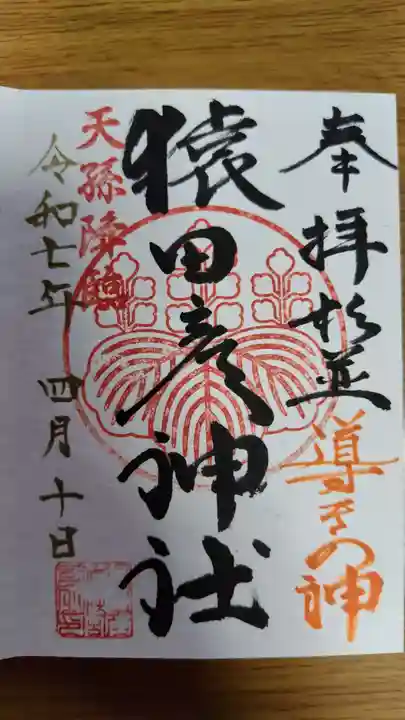 奉拝
杉並
導きの神
猿田彦神社
天孫降臨
令和七年 四月十日